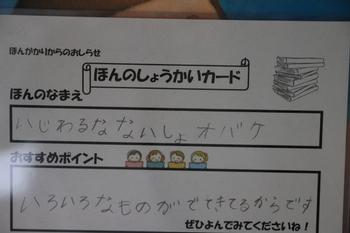 ほんがかりからのおしらせ
ほんのしょうかいカード
ほんのなまえ
いじわるなないしょオバケ
おすすめポイント
いろいろなものがでてきてるからです
ぜひよんでみてくださいね!